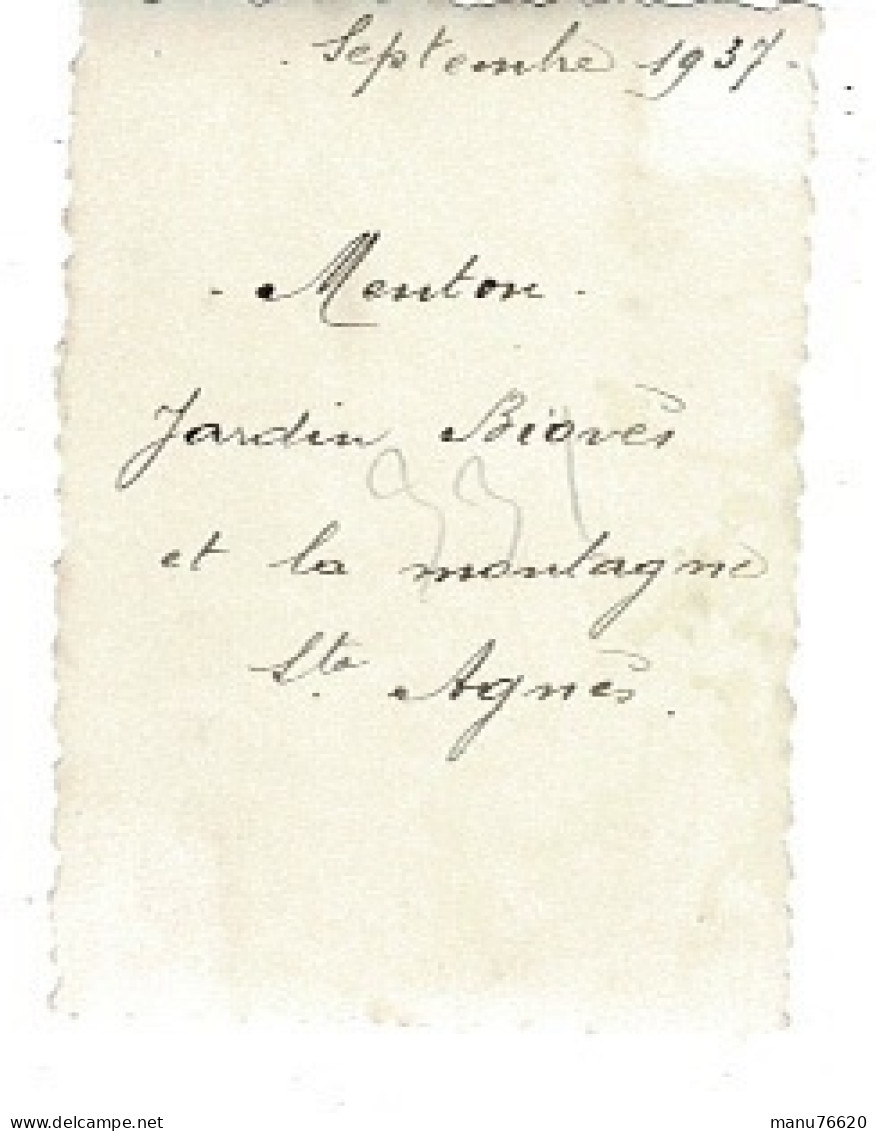 - Septembre 1937 -
- Menton -
Jardin Biovès
et la montagne
Ste Agnès.
www.delcampe.net
manu76620